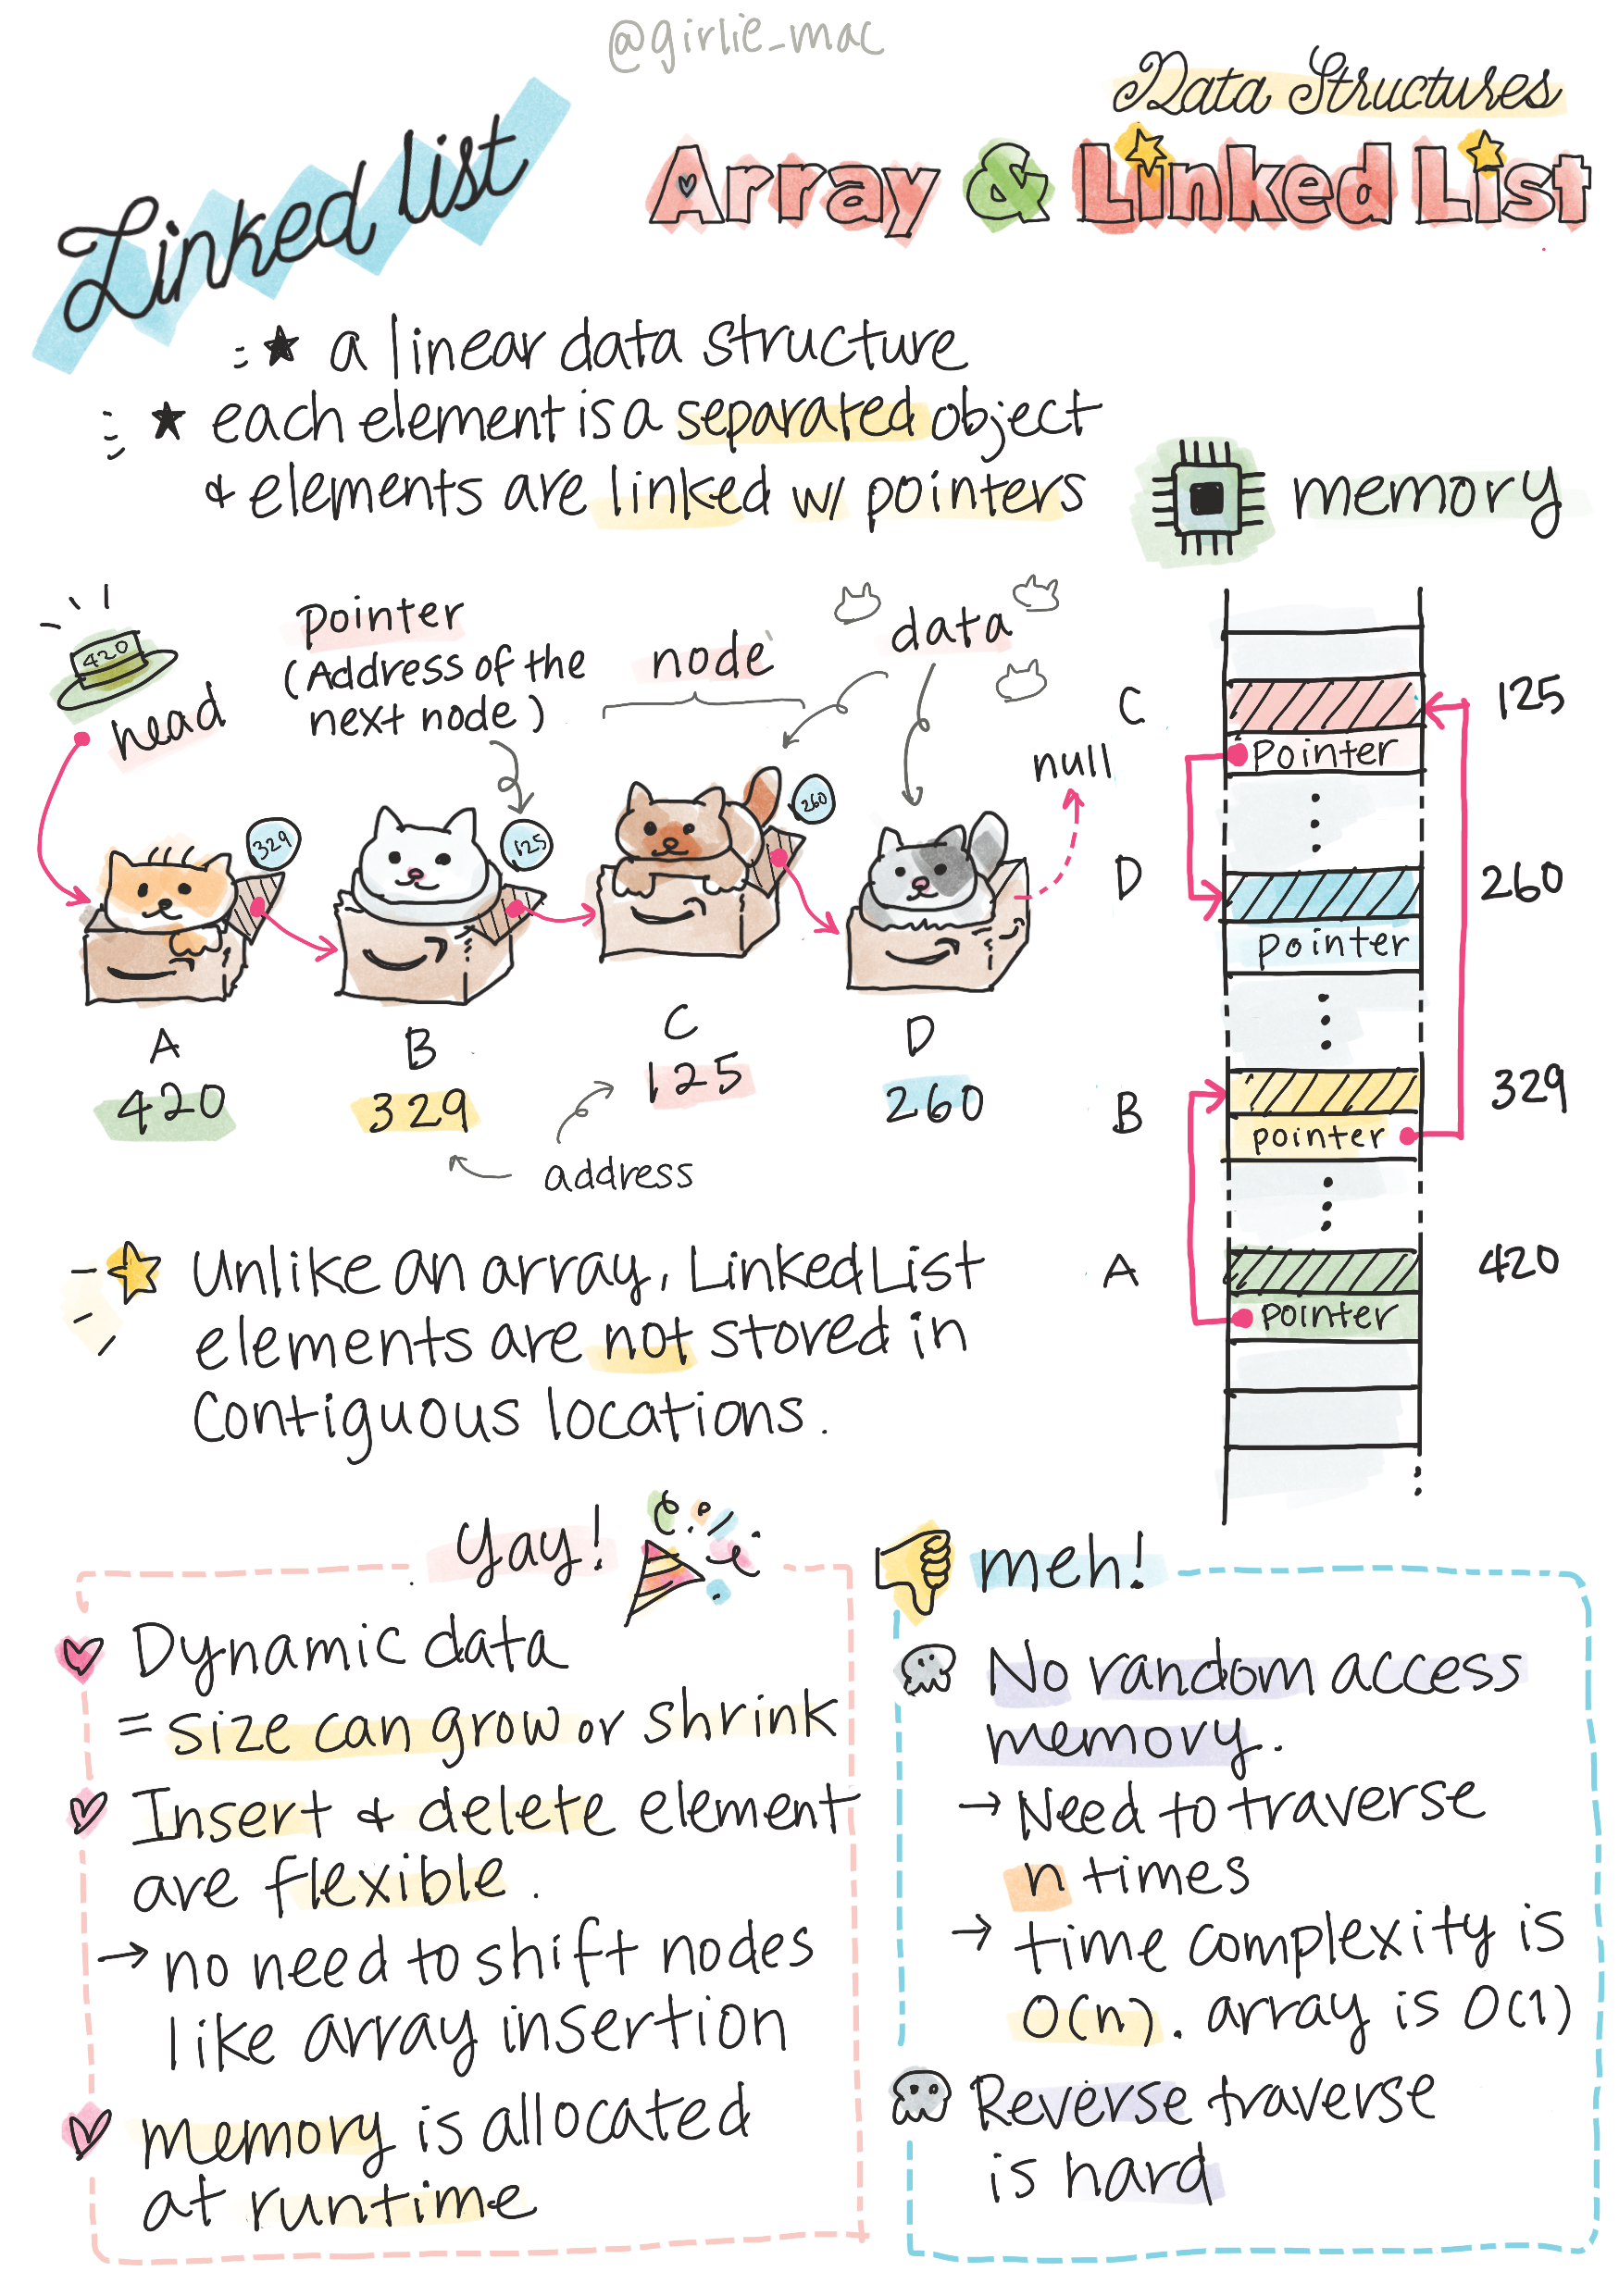 @girlie_mac
Data Structures
Array & Linked List
Linked list
a linear data structure
each element is a separated object
& elements are linked w/ pointers
memory
420
head
pointer
(Address of the
next node)
node
data
null
329
125
260
A
420
B
329
C
125
D
260
address
C
125
pointer
D
260
pointer
B
329
pointer
A
420
pointer
Unlike an array, Linked List
elements are not stored in
contiguous locations.
yay!
Dynamic data
= size can grow or shrink
Insert & delete element
are flexible.
→ no need to shift nodes
like array insertion
memory is allocated
at runtime
meh!
No random access
memory.
→ Need to traverse
n times
→ time complexity is
O(n). array is O(1)
Reverse traverse
is hard